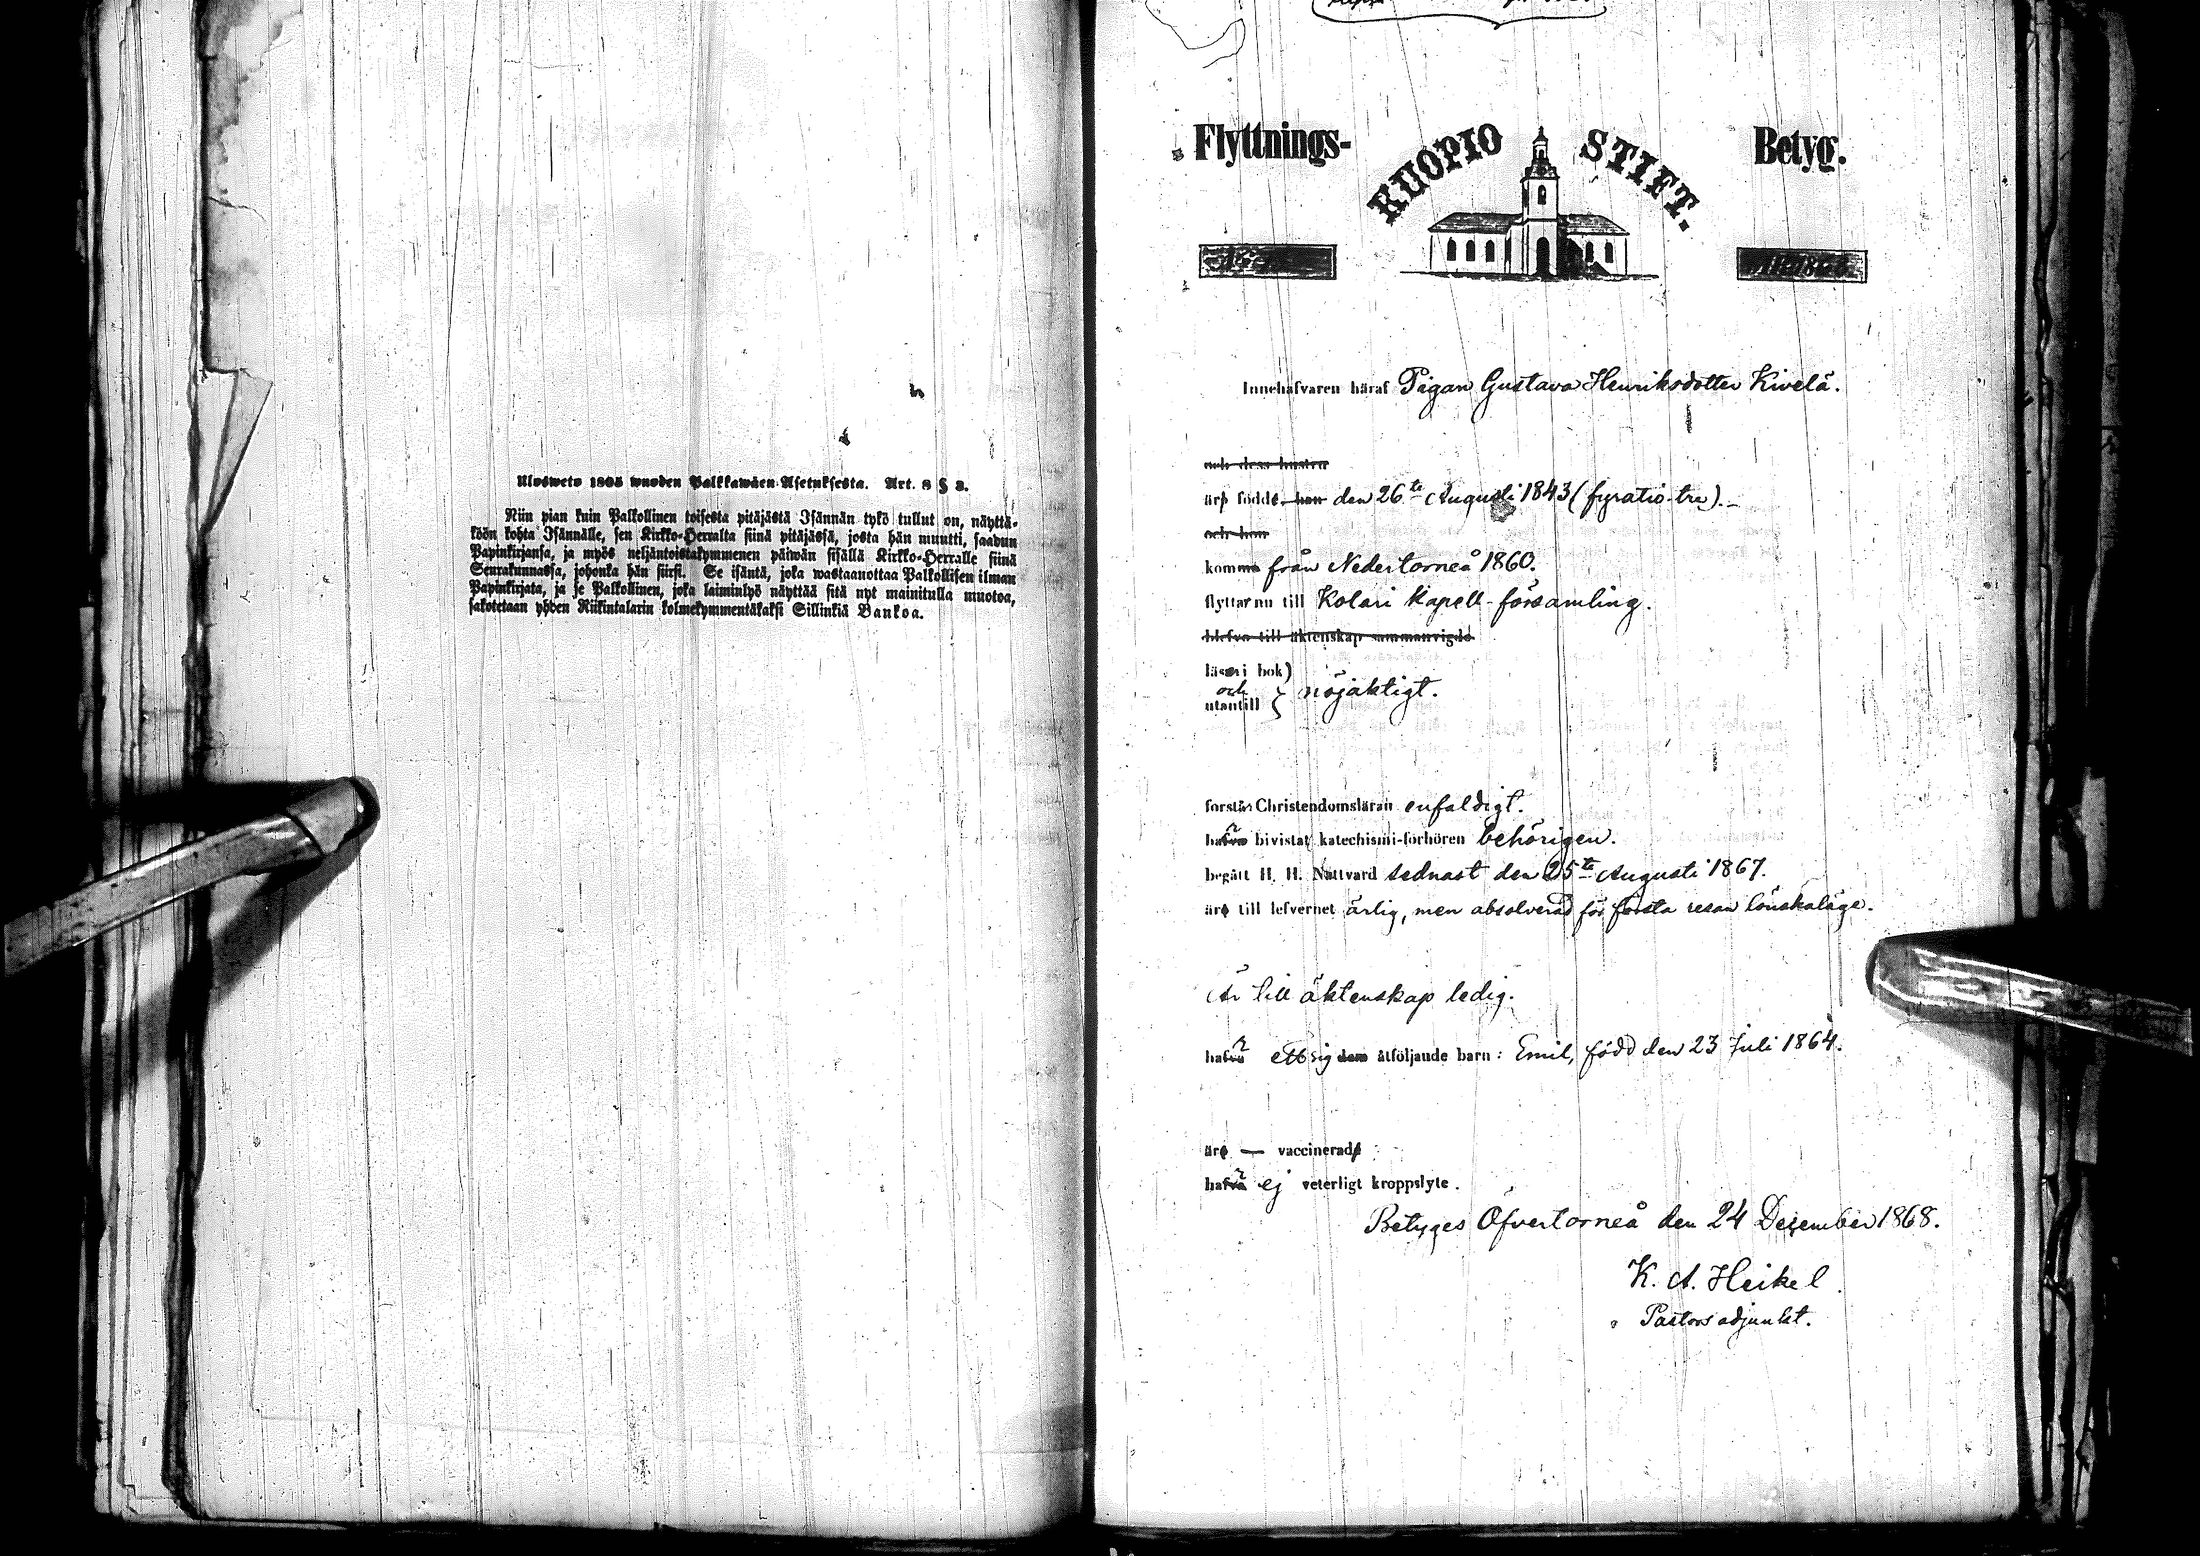 Ulosweto 1805 wuoden Palkkawäen Asetuksesta. Art. 8 § 3.
Niin pian kuin Palkollinen toisesta pitäjästä Isännän tykö tullut on, näyttä-
köön kohta Isännälle, sen Kirkko-Herralta siinä pitäjässä, josta hän muutti, saadun
Papinkirjansa, ja myös neljäntoistakymmenen päiwän sisällä Kirkko-Herralle siinä
Seurakunnassa, johonka hän siirsi. Se isäntä, joka wastaanottaa Palkollisen ilman
Papinkirjata, ja se Palkollinen, joka laiminlyö näyttää sitä nyt mainitulla muotoa,
sakotetaan yhden Riikintalarin kolmekymmentäkaksi Sillinkiä Bankoa.
Flyttnings- KUOPIO STIFT. Betyg.
Innehafvaren häraf Pigan Gustava Henriksdotter Kivelä.
och dess hustru
är född, han den 26te Augusti 1843 (fyratio-tre).-
och hon
kom från Nedertorneå 1860.
flyttar nu till Kolari kapell-församling.
blefvo till äktenskap sammanvigde
läser i bok)
och } nöjaktigt.
utantill
förstår Christendomsläran enfaldigt.
har bivistat katechismi-förhören behörigen.
begått H. H. Nattvard sednast den 25te Augusti 1867.
är till lefvernet ärlig, men absolverad för första resan lönskaläge.
Är till äktenskap ledig.
har ett sig dem åtföljande barn: Emil, född den 23 Juli 1864.
är — vaccinerad
har ej veterligt kroppslyte.
Betyges Öfvertorneå den 24 Dezember 1868.
K. A. Heikel.
Pastors adjunkt.